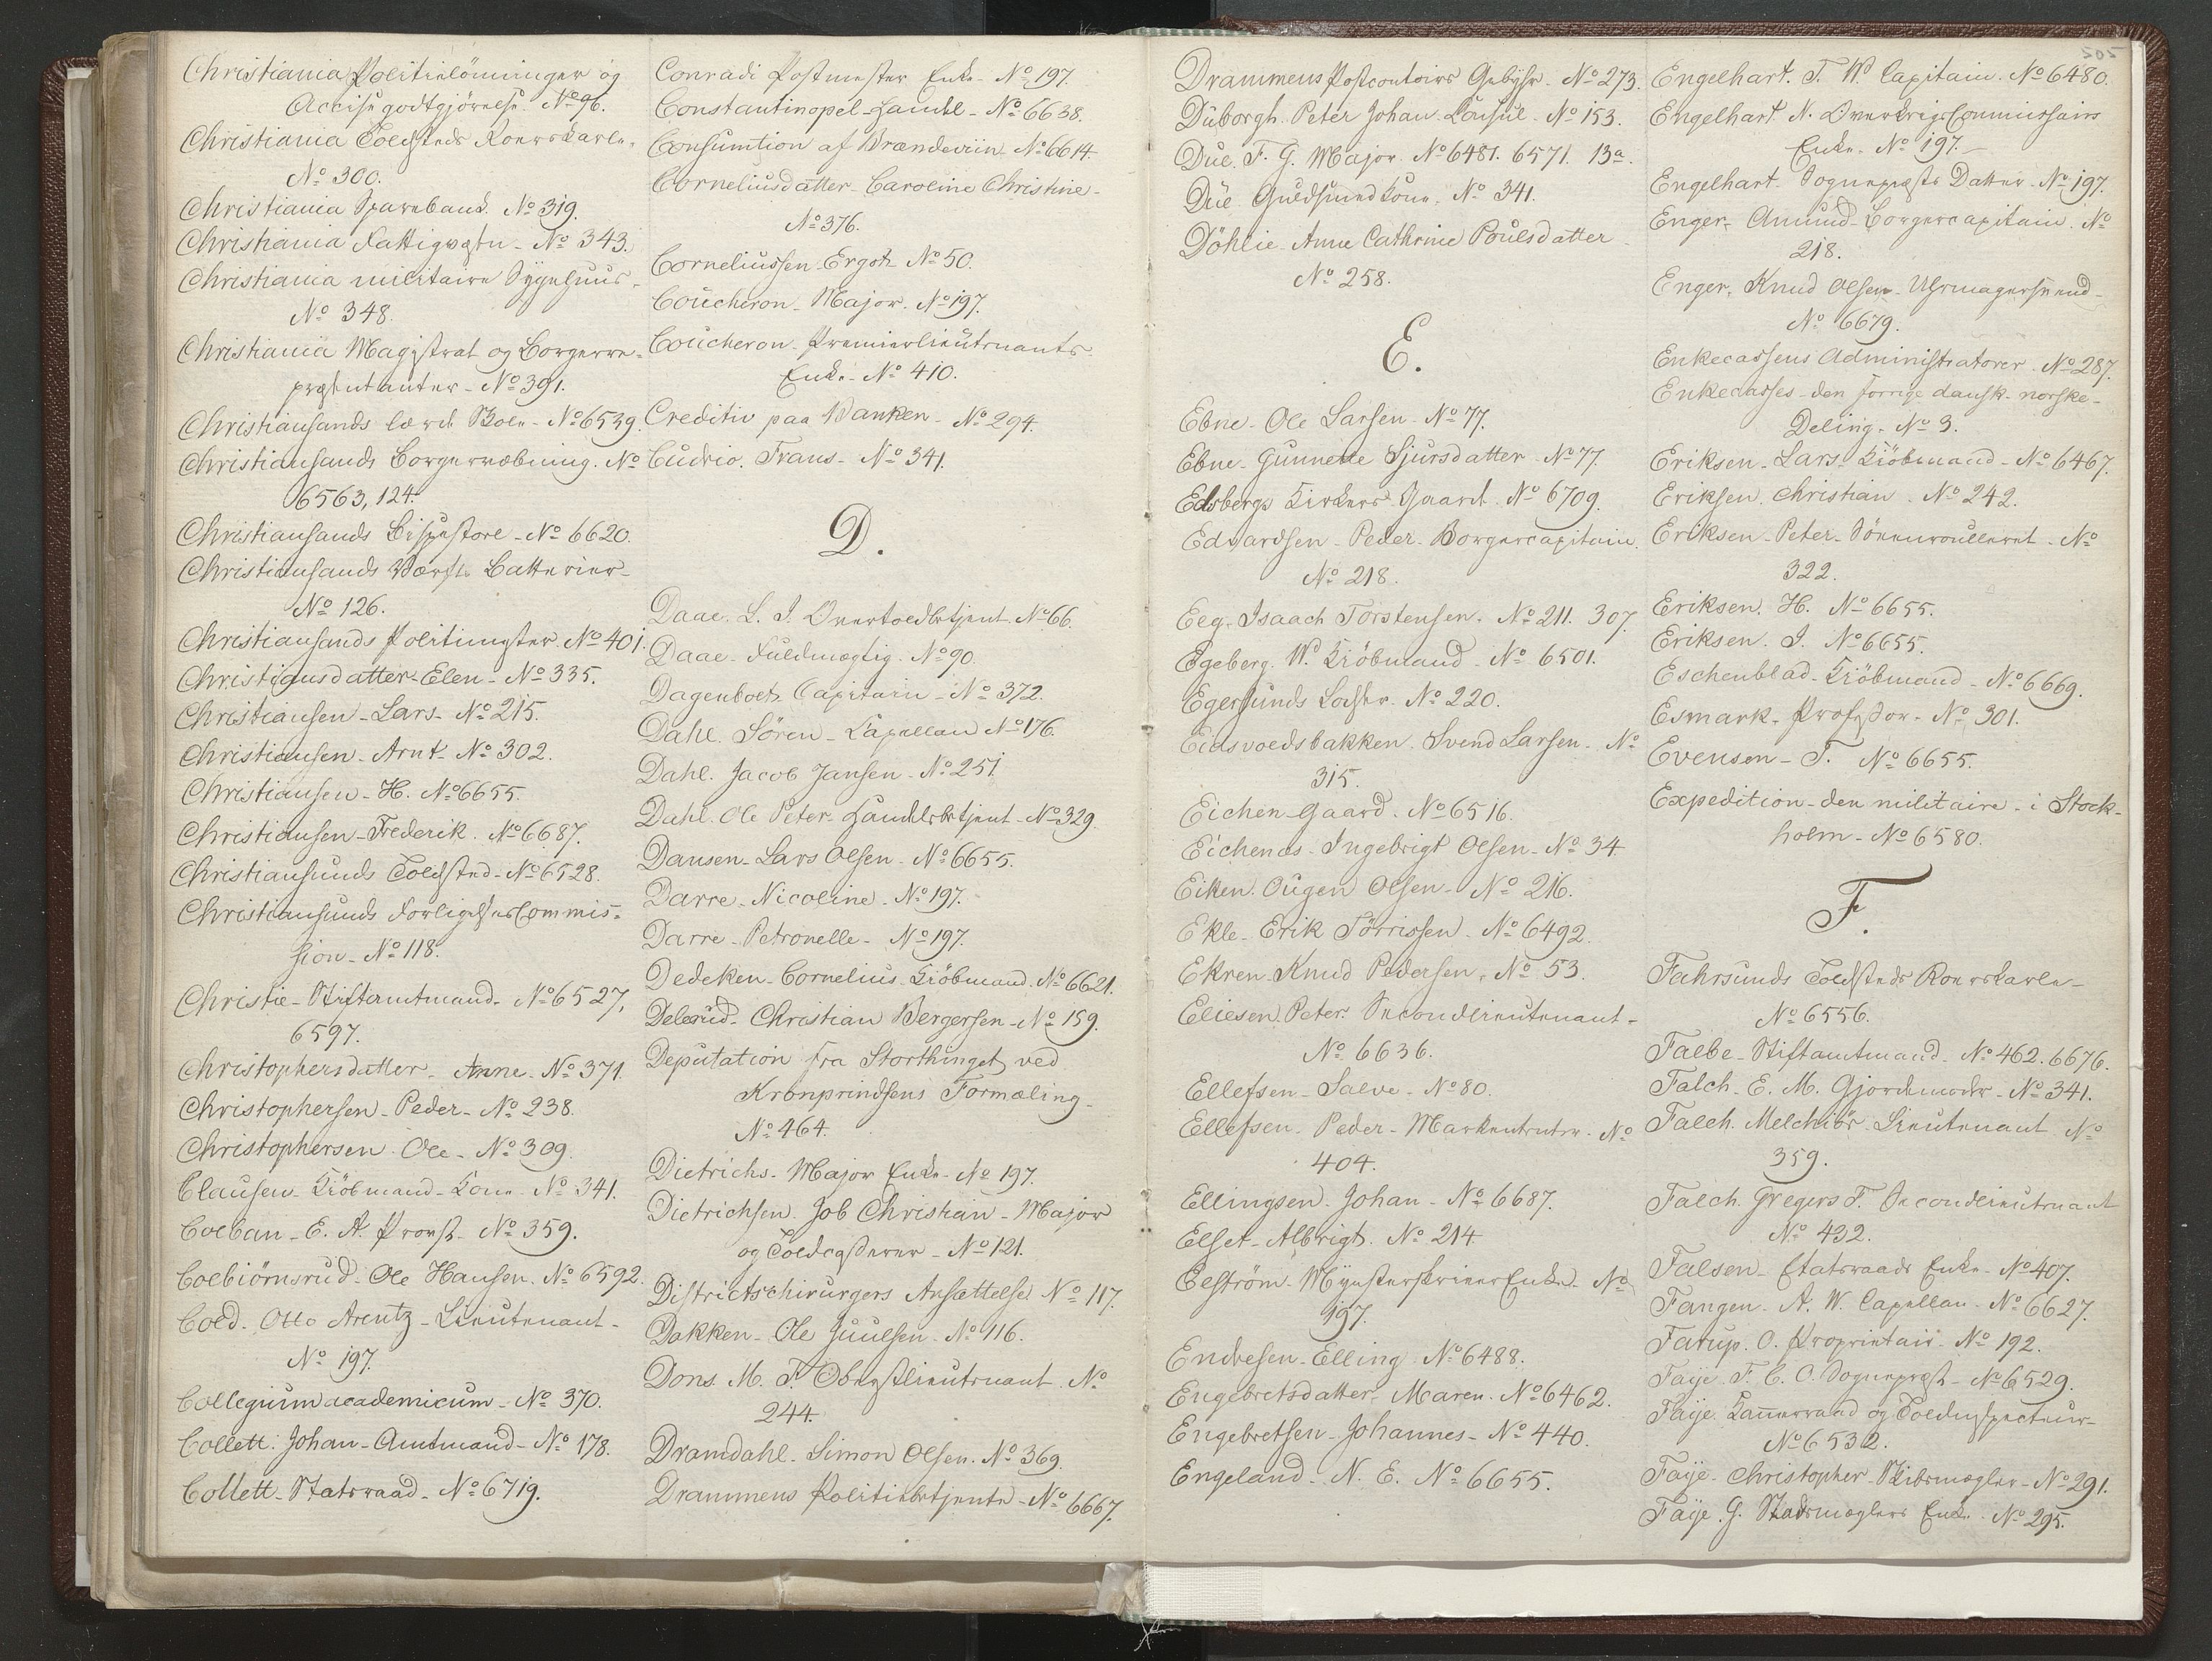 Christiania Politielönninger og
Accise godtgjörelse. No 96.
Christiania Toldsteds Roerskarle.
No 300.
Christiania Sparebank. No 319.
Christiania Fattigvæsen - No 343.
Christiania militaire Sygehuus.
No 348.
Christiania Magistrat og Borgerre-
præsentanter - No 391.
Christiansands lærde Skole - No 6539.
Christiansands Borgervæbning. No
6563, 124.
Christiansands Bispestole - No 6620.
Christiansands Værfts Batterier -
No 126.
Christiansands Politimester. No 401.
Christiansdatter - Elen - No 335.
Christiansen - Lars - No 215.
Christiansen - Arnt - No 302.
Christiansen - H. No 6655.
Christiansen - Frederik. No 6687.
Christiansunds Toldsted - No 6528.
Christiansunds Forligelses Commis-
sion - No 118.
Christie - Stiftamtmand. No 6527,
6597.
Christophersdatter - Anne - No 371.
Christophersen - Peder - No 238.
Christophersen - Ole - No 309.
Clausen - Kiöbmand - Kone - No 341.
Colban - E. A. Provst - No 359.
Colbiörnsrud - Ole Hansen. No 6592.
Cold. Otto Arentz - Lieutenant -
No 197.
Collegium academicum - No 370.
Collett. Johan - Amtmand - No 178.
Collett - Statsraad - No 6719.
Conradi Postmester Enke - No 197.
Constantinopel - Handel - No 6638.
Consumtion af Brændeviin - No 6614.
Corneliusdatter - Caroline Christine -
No 376.
Corneliussen - Ergot - No 50.
Coucheron - Major. No 197.
Coucheron - Premierlieutenants -
Enke - No 410.
Creditiv paa Banken - No 294.
Cudrio. Frans - No 341.
D.
Daae. L. J. Overtoldbetjent. No 66.
Daae - Fuldmægtig. No 90.
Dagenbolt Capitain - No 372.
Dahl. Sören - Kapellan No 176.
Dahl. Jacob Jansen - No 251.
Dahl. Ole Peter - Handelsbetjent - No 329.
Dansen - Lars Olsen - No 6655.
Darre - Nicoline - No 197.
Darre - Petronelle - No 197.
Dedeken - Cornelius - Kiöbmand. No 6621.
Delerud - Christian Bergersen - No 159.
Deputation fra Storthinget ved
Kronprindsens Formæling -
No 464.
Dietrichs - Major Enke - No 197.
Dietrichsen. Job Christian - Major
og Toldcasserer - No 121.
Districtschirurgers Ansættelse No 117.
Dokken - Ole Juulsen - No 116.
Dons. M. F. Oberstlieutenant No
244.
Dramdahl - Simon Olsen. No 369.
Drammens Politiebetjente - No 6667.
Drammens Postcontoirs Gebyhr - No 273.
Düborgh. Peter Johan. Konsul. No 153.
Düe. F. G. Major. No 6481. 6571. 13a.
Düe Guldsmed Kone. No 341.
Döhlie - Anne Cathrine Poulsdatter
No 258.
E.
Ebne - Ole Larsen - No 77.
Ebne - Gunnelle Sjursdatter - No 77.
Edsbergs Kirkers Gaard. No 6709.
Edvardsen - Peder - Borgercapitain.
No 218.
Eeg - Isaach Torstensen. No 211. 307.
Egeberg. W. Kiöbmand - No 6501.
Egersunds Lodser. No 220.
Eidsvoldsbakken. Svend Larsen - No
315.
Eichen - Gaard. No 6516.
Eichenes - Ingebrigt Olsen - No 34
Eiken. Ougen Olsen - No 216.
Ekle - Erik Törrissen - No 6492.
Ekren - Knud Pedersen - No 53.
Eliesen. Peter. Secondlieutenant -
No 6636.
Ellefsen - Salve - No 80.
Ellefsen - Peder - Markententer. No
404.
Ellingsen. Johan - No 6687.
Elset - Albrigt. No 214
Elström - Mynsterskriver Enke - No
197.
Endresen - Elling. No 6488.
Engebretsdatter. Maren. No 6462.
Engebretsen - Johannes - No 440.
Engeland - N. E. No 6655.
Engelhart. T. W. Capitain. No 6480.
Engelhart N. Overkrigs Commissairs
Enke - No 197.
Engelhart. Sognepræsts Datter - No 197.
Enger. Amund - Borgercapitain. No
218.
Enger. Knud Olsen - Uhrmagersvend -
No 6679.
Enkecassens Administratorer. No 287.
Enkecasses - den forrige dansk-norske -
Deling. No 3.
Eriksen - Lars - Kiöbmand - No 6467.
Eriksen. Christian. No 242.
Eriksen - Peter - Söenrouleret. No
322.
Eriksen. H. No 6655.
Eriksen. J. No 6655.
Eschenblad - Kiöbmand - No 6669.
Esmark. Professor - No 301.
Evensen - T. No 6655.
Expedition - den militaire - i Stock-
holm - No 6580.
F.
Fahrsunds Toldsteds Roerskarle -
No 6556.
Falbe - Stiftamtmand - No 462. 6676.
Falch - E. M. Gjordemoder - No 341.
Falch. Melchiör - Lieutenant No
359.
Falch. Gregers F. Secondlieutenant
No 432.
Falsen - Etatsraads Enke - No 407.
Fangen. A. W. Capellan - No 6627.
Farup. O. Proprietair - No 192.
Faye. F. C. C. Sognepræst - No 6529.
Faye. Kammerraad og Toldinspecteur -
No 6532.
Faye. Christopher - Skibsmægler - No 291.
Faye. G. Stadsmæglers Enke. No 295.